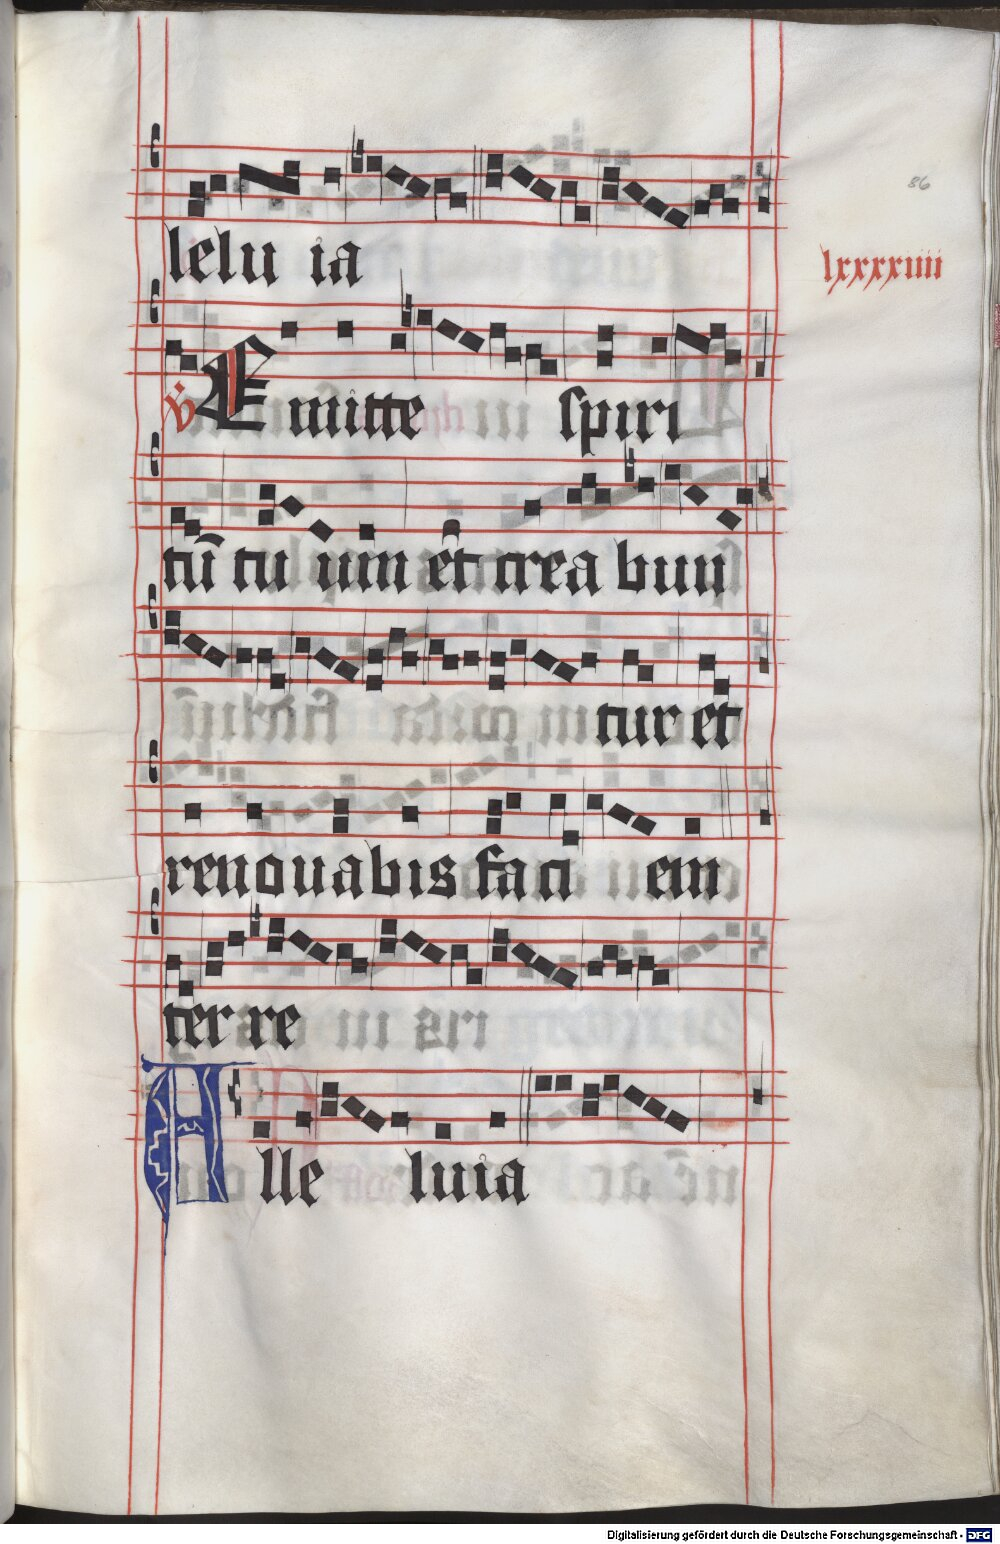 86
lxxxxiiii
lelu ia
v̇ Emitte spiri
tū tu um et crea bun
tur et
renouabis faci em
ter re
Alle luia
Digitalisierung gefördert durch die Deutsche Forschungsgemeinschaft - DFG